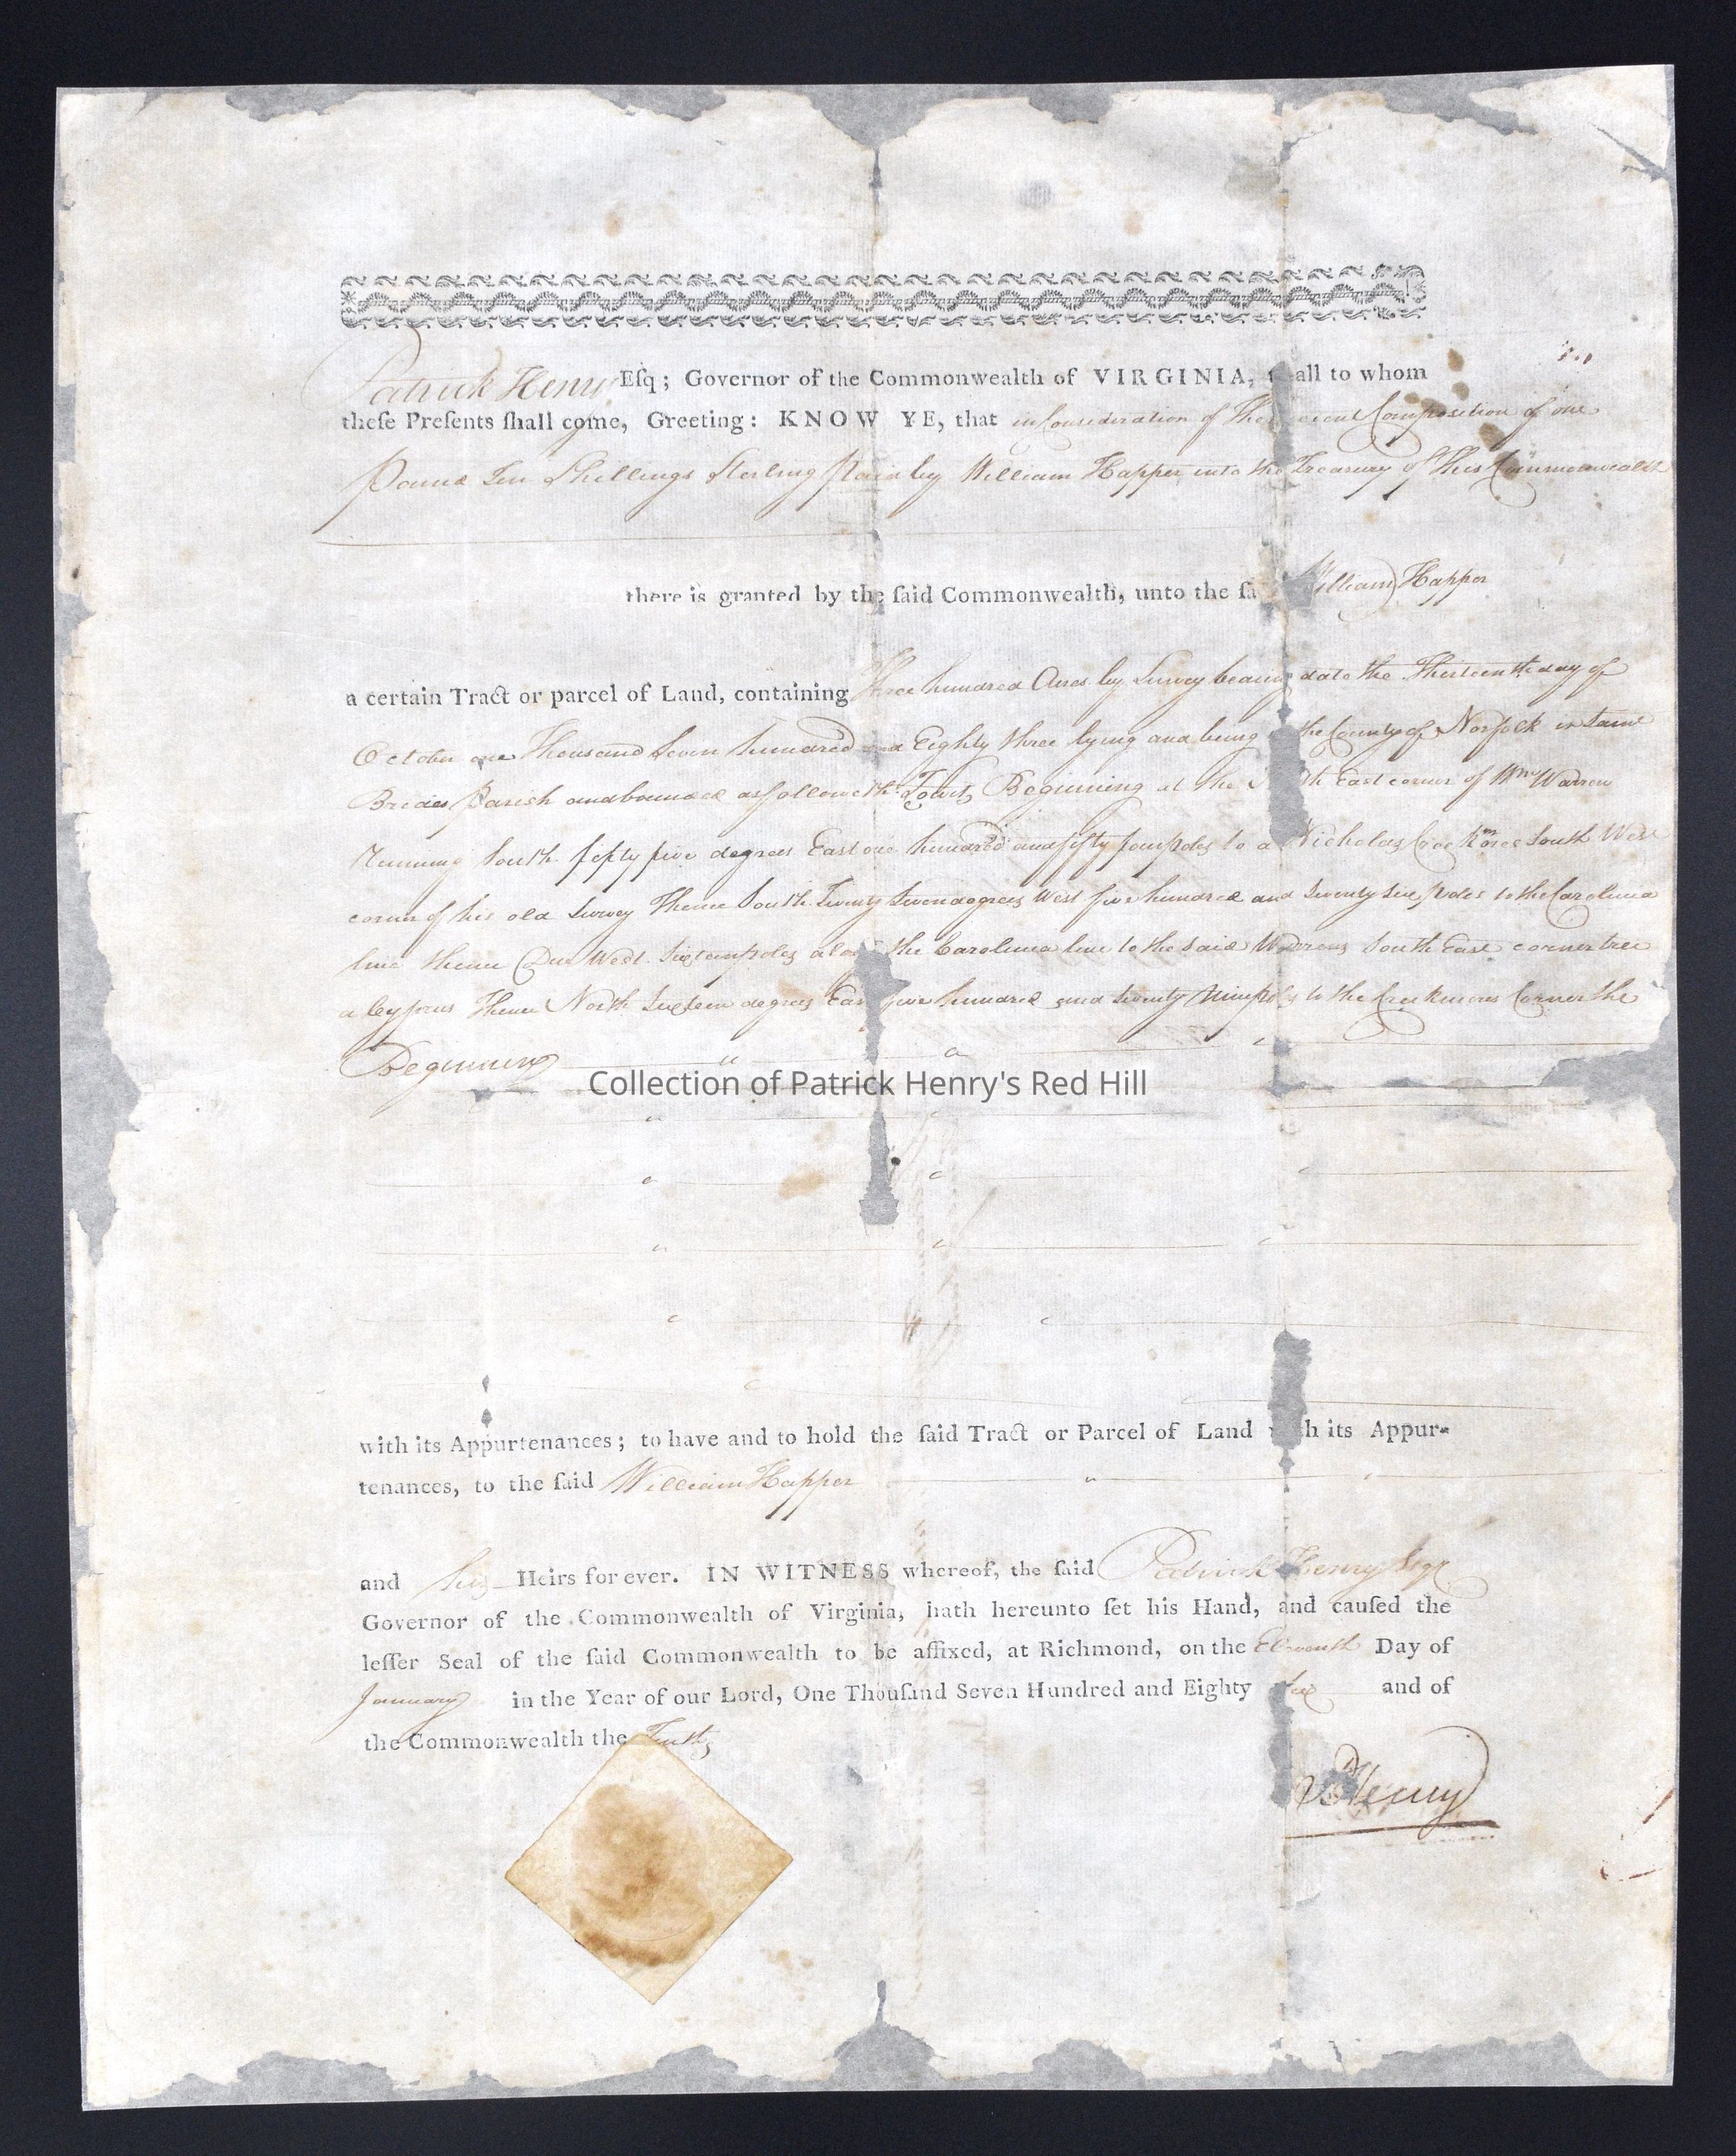 Patrick Henry Eſq; Governor of the Commonwealth of VIRGINIA, all to whom
theſe Preſents ſhall come, Greeting: KNOW YE, that in Consideration of The Composition of one
Pound Ten Shillings Sterling Paid by William Happer into the Treasury of this Commonwealth
there is granted by the ſaid Commonwealth, unto the ſa William Happer
a certain Tract or parcel of Land, containing Three hundred Acres by Survey bearing date the Thirteenth day of
October one Thousand Seven hundred and Eighty three lying and being the County of Norfolk in Saint
Brides Parish and bounded as followeth, Towit, Beginning at the East corner of Wm Warren
Running South fifty five degrees East one hundred and fifty four poles to a Nicholas South West
corner of his old Survey Thence South Twenty Seven degrees West five hundred and Seventy Six poles to the Carolina
line thence Due West Sixteen poles along the Carolina line to the Said Warrens South East corner tree
a Cyprus Thence North Sixteen degrees East five hundred and Seventy Nine poles to the Creekmores Corner the
Beginning
Collection of Patrick Henry's Red Hill
with its Appurtenances; to have and to hold the ſaid Tract or Parcel of Land with its Appur-
tenances, to the ſaid William Happer
and his Heirs for ever. IN WITNESS whereof, the ſaid Patrick Henry Esqr
Governor of the Commonwealth of Virginia, hath hereunto ſet his Hand, and cauſed the
leſſer Seal of the ſaid Commonwealth to be affixed, at Richmond, on the Eleventh Day of
January in the Year of our Lord, One Thouſand Seven Hundred and Eighty Six and of
the Commonwealth the Tenth
P. Henry